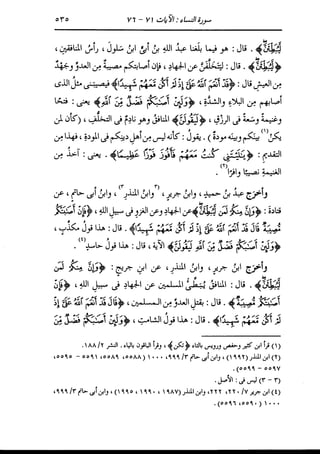 سورة النساء : الآيات ٧١ - ٧٦ ٥٣٥
لَّيُبَطِّئَنَّ﴾ . قال : هو فيما بلغنا عبدُ اللهِ بنُ أُبَيٍّ ابنُ سلولَ ، رأسُ المنافقين ،
﴿لَّيُبَطِّئَنَّ﴾ . قال : ليتخلَّفنَّ عن الجهادِ ، فإن أصابتكم مصيبةٌ من العدوِّ وجَهْدٌ
من العيشِ قال : ﴿قَدْ أَنْعَمَ اللَّهُ عَلَيَّ إِذْ لَمْ أَكُن مَّعَهُمْ شَهِيدًا﴾ فيصيبني مثلُ الذي
أصابهم من البلاءِ والشدةِ ، ﴿وَلَئِنْ أَصَابَكُمْ فَضْلٌ مِّنَ اللَّهِ﴾ يعني : فتحًا
وغنيمةً وسَعةً في الرزقِ ، ﴿لَيَقُولَنَّ﴾ المنافقُ وهو نادمٌ في التخلفِ ، ﴿كَأَن لَّمْ
يكن(١) بَيْنَكُمْ وَبَيْنَهُ مَوَدَّةٌ﴾ . يقولُ : كأنه ليس من أهلِ دينِكم في المودةِ ، فهذا من
التقديمِ : ﴿يَا لَيْتَنِي كُنتُ مَعَهُمْ فَأَفُوزَ فَوْزًا عَظِيمًا﴾ . يعني : آخذَ من
الغنيمةِ نصيبًا وافرًا(٢) .
وأخرج عبدُ بنُ حميدٍ ، وابنُ جريرٍ ، (٣وابنُ المنذرِ٣) ، وابنُ أبي حاتمٍ ، عن
قتادةَ : ﴿وَإِنَّ مِنكُمْ لَمَن لَّيُبَطِّئَنَّ﴾ عن الجهادِ وعن الغزوِ في سبيلِ اللهِ ، ﴿فَإِنْ أَصَابَتْكُم
مُّصِيبَةٌ قَالَ قَدْ أَنْعَمَ اللَّهُ عَلَيَّ إِذْ لَمْ أَكُن مَّعَهُمْ شَهِيدًا﴾ . قال : هذا قولُ مكذِّبٍ ،
﴿وَلَئِنْ أَصَابَكُمْ فَضْلٌ مِّنَ اللَّهِ لَيَقُولَنَّ﴾ الآية ، قال : هذا قولُ حاسدٍ(٤) .
وأخرج ابنُ جريرٍ ، وابنُ المنذرِ ، عن ابنِ جريجٍ : ﴿وَإِنَّ مِنكُمْ لَمَن
لَّيُبَطِّئَنَّ﴾ . قال : المنافقُ يُبَطِّئُ المسلمين عن الجهادِ في سبيلِ اللهِ ، ﴿فَإِنْ
أَصَابَتْكُم مُّصِيبَةٌ﴾ . قال : بقتلِ العدوِّ من المسلمين ، ﴿قَالَ قَدْ أَنْعَمَ اللَّهُ عَلَيَّ إِذْ
لَمْ أَكُن مَّعَهُمْ شَهِيدًا﴾ . قال : هذا قولُ الشامتِ ، ﴿وَلَئِنْ أَصَابَكُمْ فَضْلٌ مِّنَ
(١) قرأ ابن كثير وحفص ورويس بالتاء ﴿تكن﴾ ، وقرأ الباقون بالياء . النشر ٢/ ١٨٨.
(٢) ابن المنذر (١٩٩٢) ، وابن أبي حاتم ٣/ ٩٩٩، ١٠٠٠ (٥٥٨٨، ٥٥٨٩، ٥٥٩١ - ٥٥٩٥،
٥٥٩٧ - ٥٥٩٩) .
(٣ - ٣) ليس في : الأصل .
(٤) ابن جرير ٧/ ٢٢٠، ٢٢٢، وابن المنذر (١٩٨٧، ١٩٩٠، ١٩٩٥) ، وابن أبي حاتم ٣/ ٩٩٩،
١٠٠٠ (٥٥٩٠، ٥٥٩٦) .